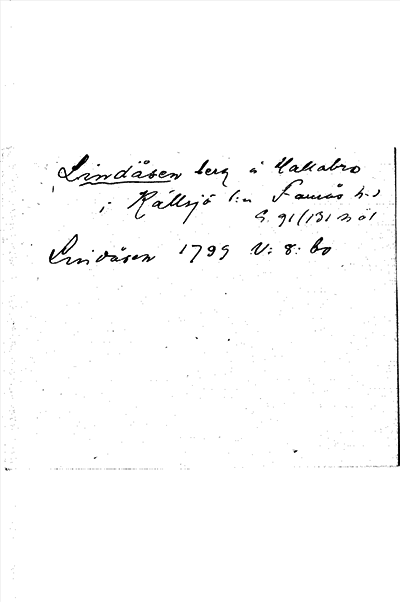 Lindåsen berg å Hallabro
i Källsjö s:n Faurås h-d
G. 91/131 n ö l
Lindåsen 1799 V: 8: 60